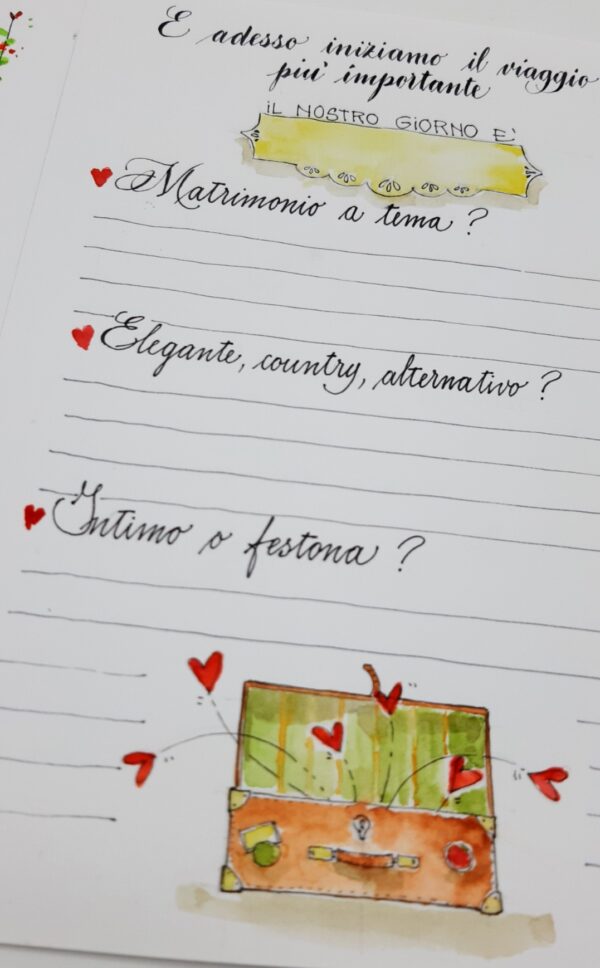 E adesso iniziamo il viaggio
più importante
iL NOSTRO GiORNO E'
Matrimonio a tema?
Elegante, country, alternativo?
Intimo o festona?